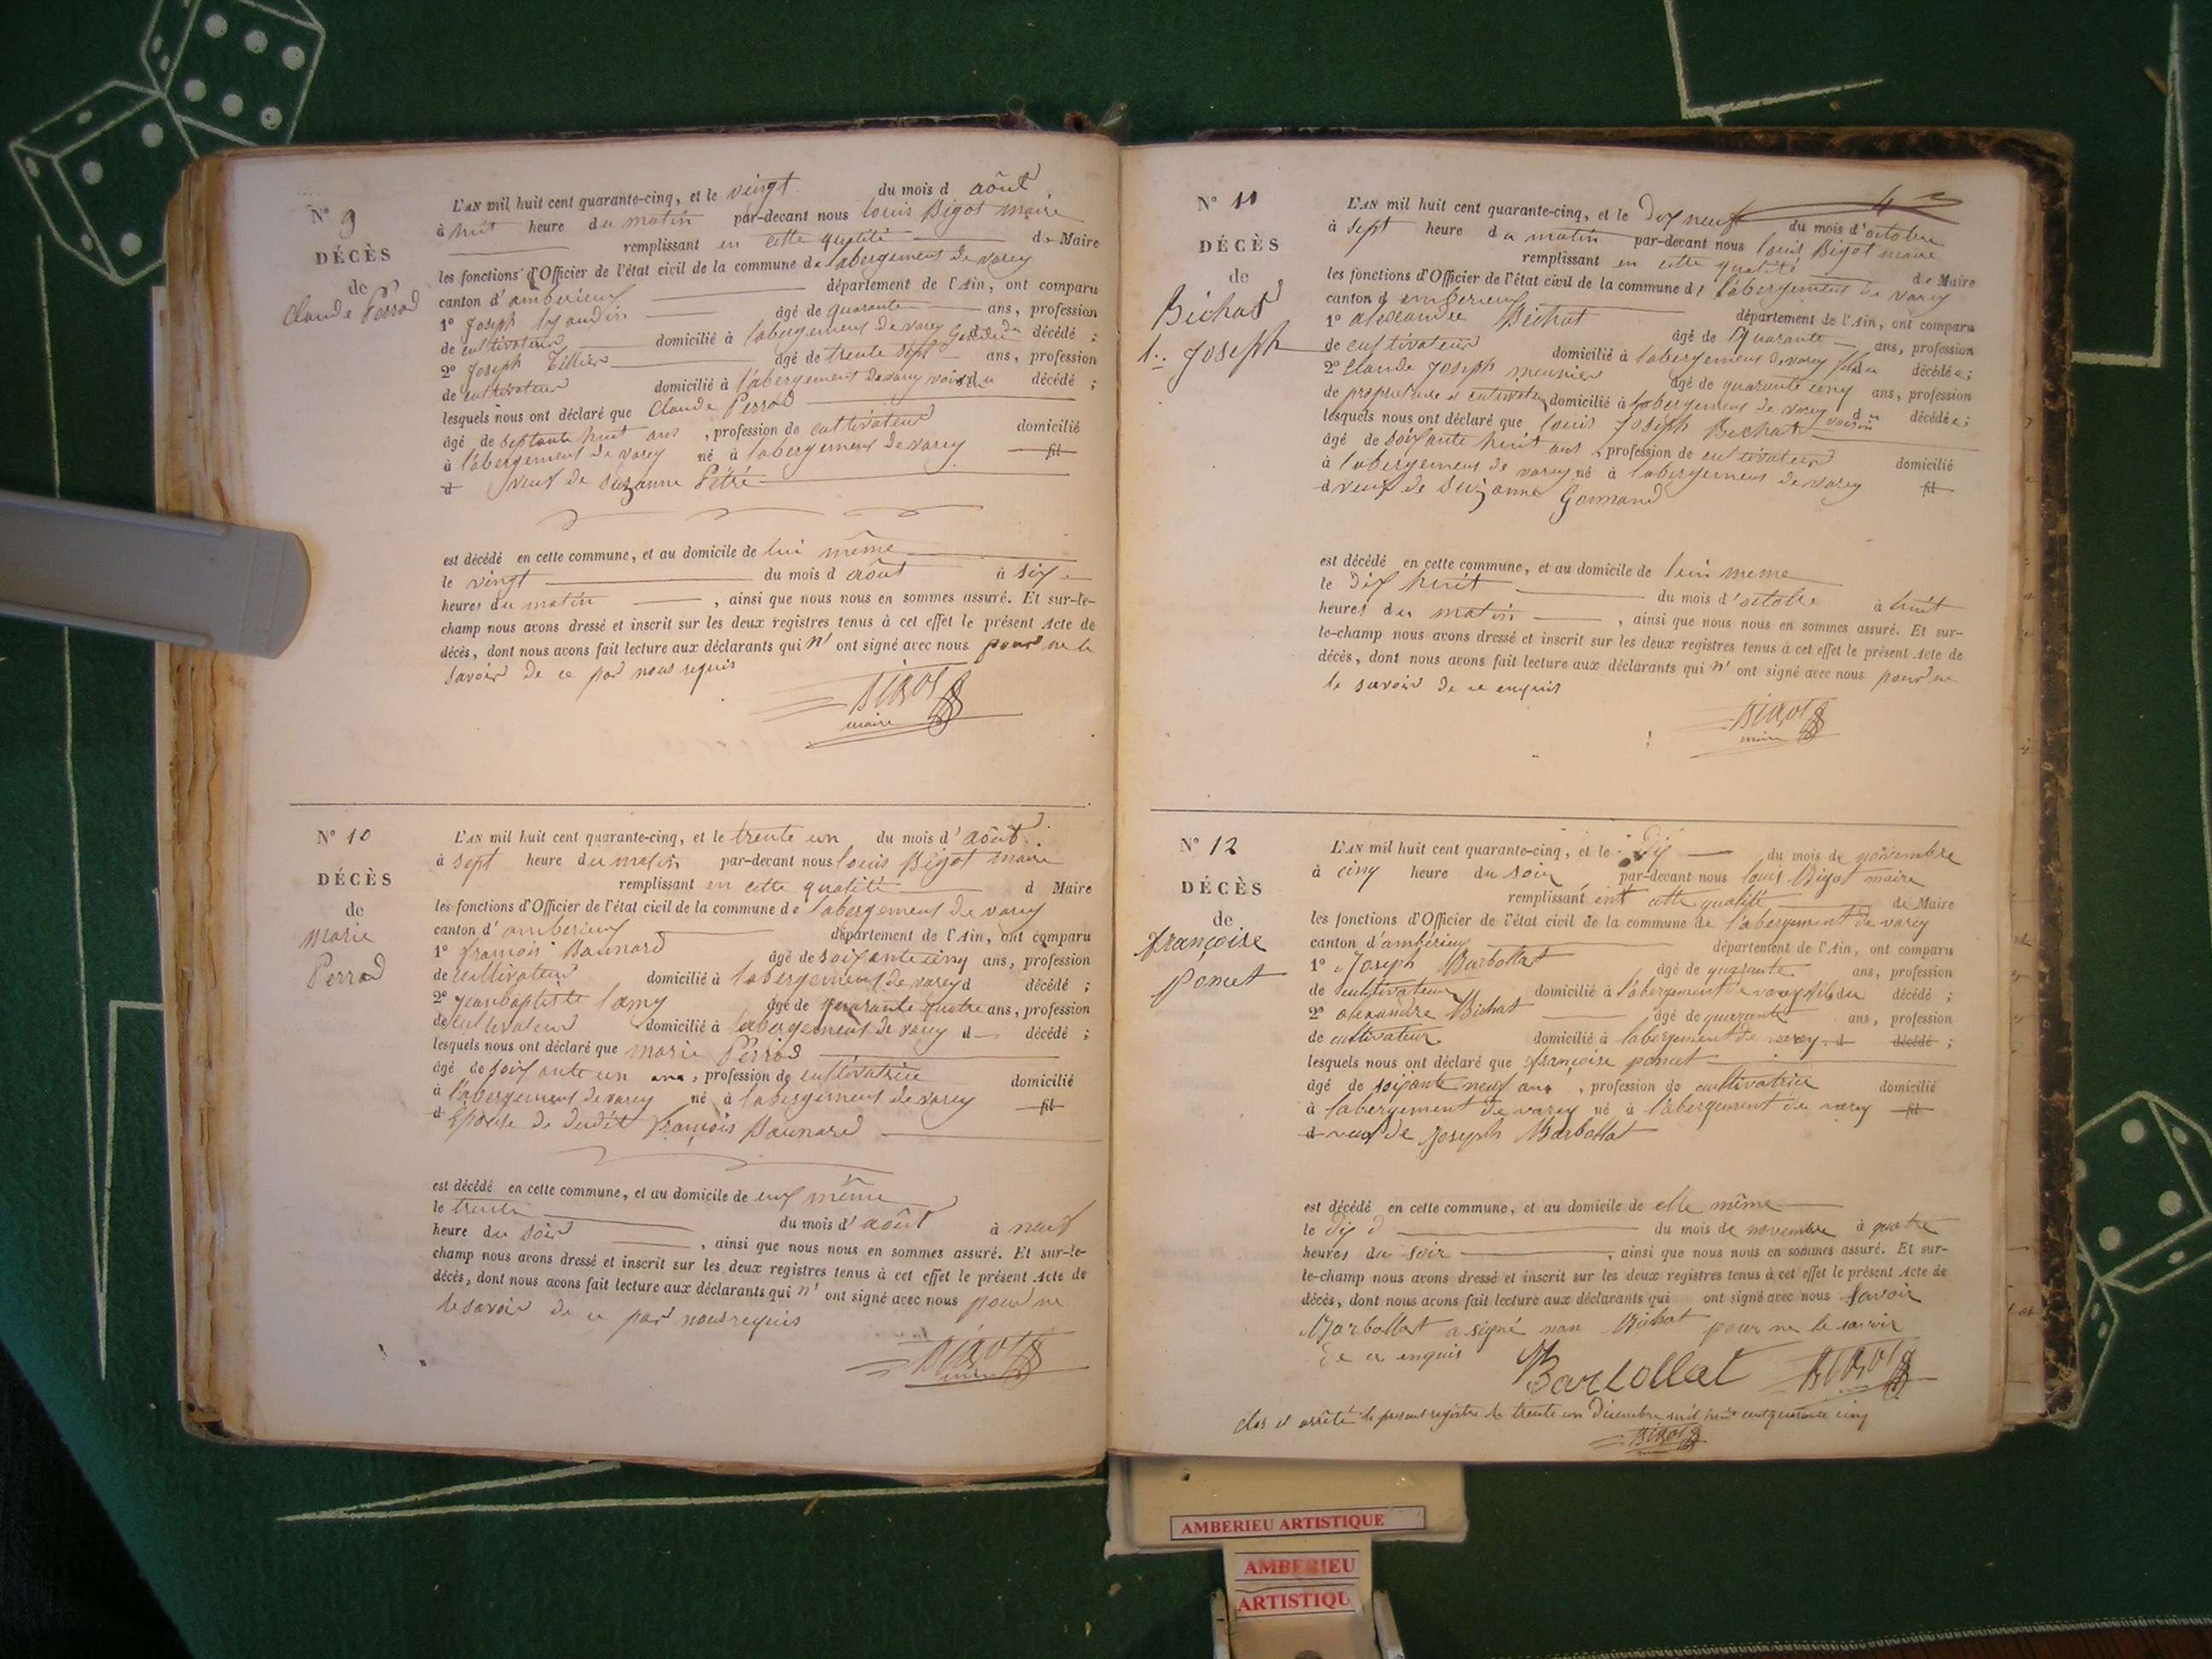 N° 9
DÉCÈS
de
Claude Perrod
L'AN mil huit cent quarante-cinq, et le vingt du mois d août
à huit heure du matin par-devant nous louis Bigot maire
remplissant en cette qualité de Maire
les fonctions d'Officier de l'état civil de la commune de labergement de varey
canton d'amberieux département de l'Ain, ont comparu
1° Joseph âgé de quarante ans, profession
de cultivateur domicilié à labergement de varey Gendre du décédé ;
2° Joseph Tillier âgé de trente sept ans, profession
de cultivateur domicilié à l'abergement de varey voisin du décédé ;
lesquels nous ont déclaré que Claude Perrod
âgé de septante huit ans , profession de cultivateur domicilié
à l'abergement de varey né à labergement de varey fil
d veuf de suzanne Pétré
est décédé en cette commune, et au domicile de lui même
le vingt du mois d août à six
heures du matin , ainsi que nous nous en sommes assuré. Et sur-le-
champ nous avons dressé et inscrit sur les deux registres tenus à cet effet le présent Acte de
décès, dont nous avons fait lecture aux déclarants qui n' ont signé avec nous pour ne le
savoir de ce par nous requis
BIGOT
maire
N° 10
DÉCÈS
de
marie
Perrod
L'AN mil huit cent quarante-cinq, et le trente un du mois d' août
à sept heure du matin par-devant nous louis Bigot maire
remplissant en cette qualité d Maire
les fonctions d'Officier de l'état civil de la commune de labergement de varey
canton d'amberieux département de l'Ain, ont comparu
1° françois Baunard âgé de soixante cinq ans, profession
de cultivateur domicilié à labergement de varey d décédé ;
2° jean baptiste lamy âgé de quarante quatre ans, profession
de cultivateur domicilié à labergement de varey d décédé ;
lesquels nous ont déclaré que marie Perrod
âgé de soixante un ans , profession de cultivatrice domicilié
à l'abergement de varey né à labergement de varey fil
d Epouse de dudit françois Baunard
est décédé en cette commune, et au domicile de eux même
le trente du mois d' août à neuf
heure du soir , ainsi que nous nous en sommes assuré. Et sur-le-
champ nous avons dressé et inscrit sur les deux registres tenus à cet effet le présent Acte de
décès, dont nous avons fait lecture aux déclarants qui n' ont signé avec nous pour ne
le savoir de ce par nous requis
BIGOT
maire
N° 11
DÉCÈS
de
Bichat
Joseph
L'AN mil huit cent quarante-cinq, et le Dix neuf du mois d'octobre
à sept heure du matin par-devant nous louis Bigot maire
remplissant en cette qualité de Maire
les fonctions d'Officier de l'état civil de la commune de labergement de varey
canton d amberieux département de l'Ain, ont comparu
1° alexandre Bichat âgé de quarante ans, profession
de cultivateur domicilié à labergement de varey fils du décédé ;
2° claude Joseph meunier âgé de quarante cinq ans, profession
de propriétaire et cultivateur domicilié à labergement de varey voisin du décédé ;
lesquels nous ont déclaré que louis Joseph Bichat
âgé de soixante huit ans , profession de cultivateur domicilié
à labergement de varey né à labergement de varey fil
d veuf de suzanne Gormand
est décédé en cette commune, et au domicile de lui meme
le Dix huit du mois d'octobre à huit
heures du matin , ainsi que nous nous en sommes assuré. Et sur-
le-champ nous avons dressé et inscrit sur les deux registres tenus à cet effet le présent Acte de
décès, dont nous avons fait lecture aux déclarants qui n' ont signé avec nous pour ne
le savoir de ce enquis
BIGOT
maire
N° 12
DÉCÈS
de
françoise
poncet
L'AN mil huit cent quarante-cinq, et le Dix du mois de novembre
à cinq heure du soir par-devant nous louis Bigot maire
remplissant en cette qualité de Maire
les fonctions d'Officier de l'état civil de la commune de l'abergement de varey
canton d'ambérieux département de l'Ain, ont comparu
1° Joseph Barbollat âgé de quarante ans, profession
de cultivateur domicilié à l'abergement de varey fils du décédé ;
2° alexandre Bichat âgé de quarante ans, profession
de cultivateur domicilié à labergement de varey d décédé ;
lesquels nous ont déclaré que françoise poncet
âgé de soixante neuf ans , profession de cultivatrice domicilié
à labergement de varey né à l'abergement de varey fil
d veuf de Joseph Barbollat
est décédé en cette commune, et au domicile de elle même
le dix du mois de novembre à quatre
heures du soir , ainsi que nous nous en sommes assuré. Et sur-
le-champ nous avons dressé et inscrit sur les deux registres tenus à cet effet le présent Acte de
décès, dont nous avons fait lecture aux déclarants qui ont signé avec nous savoir
Barbollat a signé non Bichat pour ne le savoir
de ce enquis
Barbollat BIGOT
clos et arrêté le présent registre le trente un Décembre mil huit cent quarante cinq
BIGOT
AMBERIEU ARTISTIQUE
AMBERIEU
ARTISTIQU